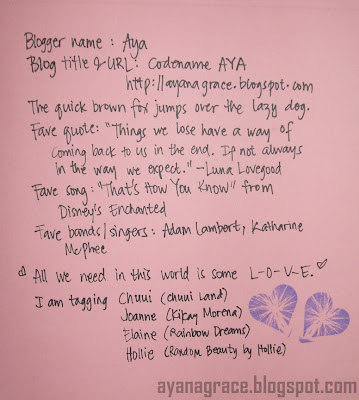 Blogger name : Aya
Blog title & URL: Codename AYA
http://ayanagrace.blogspot.com
The quick brown fox jumps over the lazy dog.
Fave quote: "Things we lose have a way of
coming back to us in the end. If not always
in the way we expect." --Luna Lovegood
Fave song: "That's How You Know" from
Disney's Enchanted
Fave bands/singers: Adam Lambert, Katharine
McPhee
All we need in this world is some L-O-V-E.
I am tagging Chuui (Chuui Land)
Joanne (Kikay Morena)
Elaine (Rainbow Dreams)
Hollie (Random Beauty by Hollie)
ayanagrace.blogspot.com